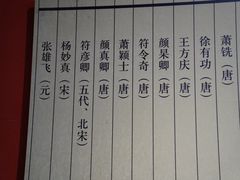 萧铣（唐）
徐有功（唐）
王方庆（唐）
颜杲卿（唐）
符令奇（唐）
萧颖士（唐）
颜真卿（唐）
符彦卿（五代、北宋）
杨妙真（宋）
张雄飞（元）